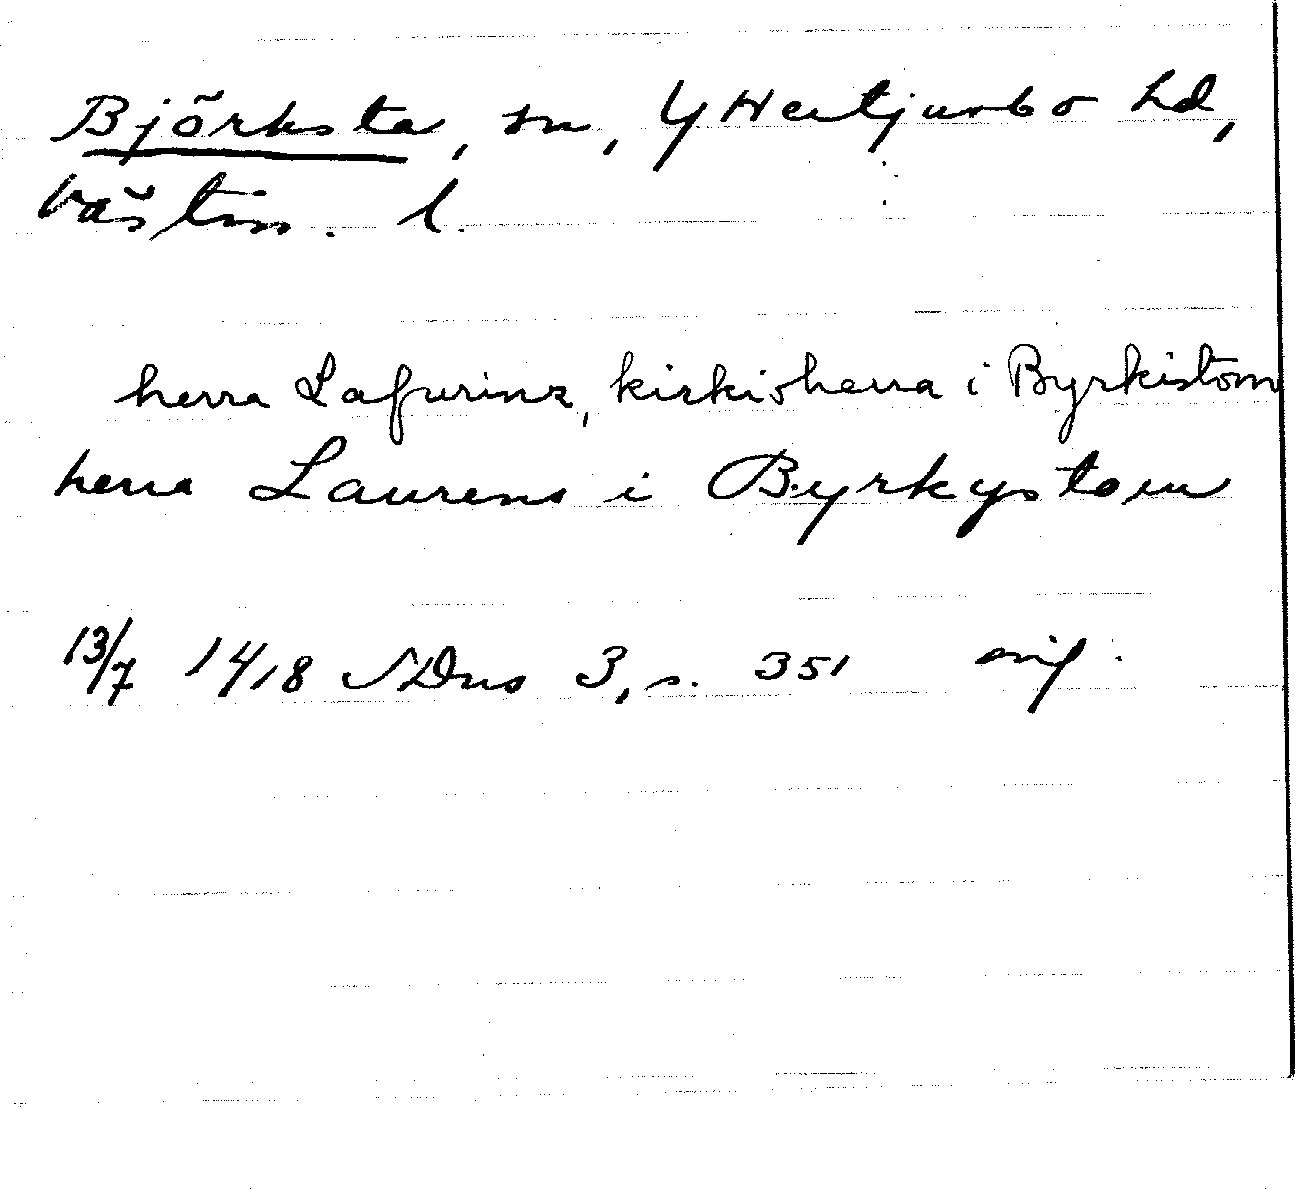 Björksta, sn, Yttertjurbo hd,
Västm. l.
herra Lafurinz, kirkioherra i Byrkistom
herra Laurens i Byrkystom
13/7 1418 SDns 3, s. 351 orig.